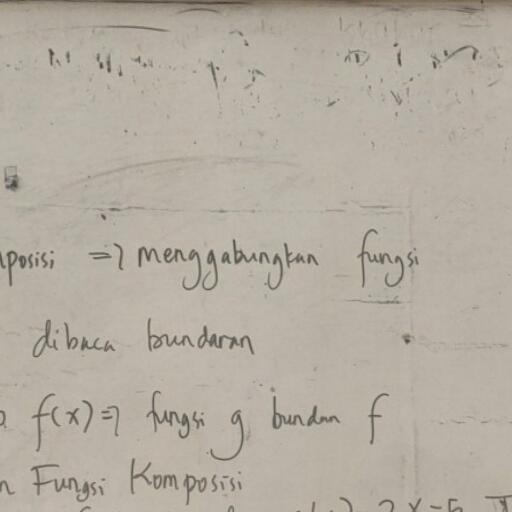 posisi => menggabungkan fungsi
dibaca bundaran
f(x) => fungsi g bundan f
n Fungsi Komposisi
2x-5